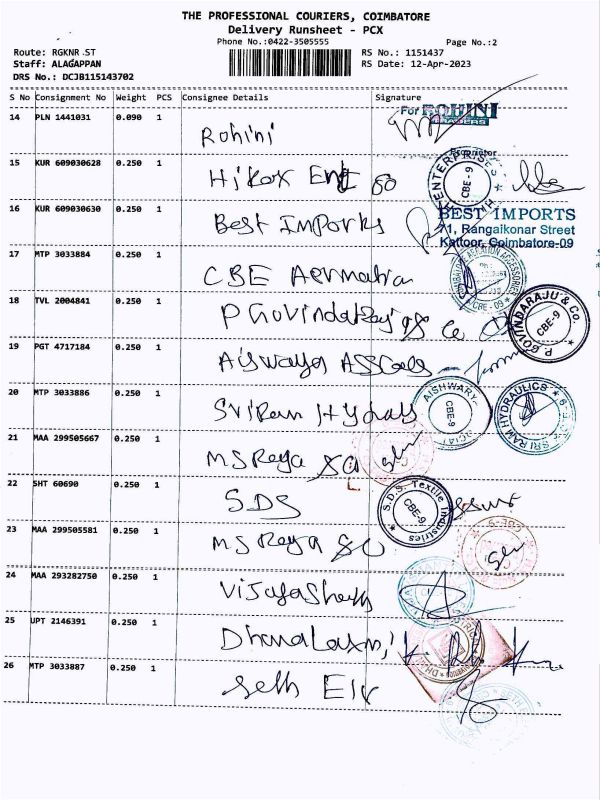 THE PROFESSIONAL COURIERS, COIMBATORE
Delivery Runsheet - PCX
Phone No.:0422-3505555
Page No.:2
Route: RGKNR ST
RS No.: 1151437
Staff: ALAGAPPAN
RS Date: 12-Apr-2023
DRS No.: DCJB115143702
S No Consignment No Weight PCS Consignee Details Signature
14 PLN 1441031 0.090 1
For ROHINI
Rohini
Proprietor
15 KUR 609030628 0.250 1
ENTERPRISES
CBE - 9
16 KUR 609030630 0.250 1
Best Imports
BEST IMPORTS
71, Rangaikonar Street
Kattoor, Coimbatore-09
17 MTP 3033884 0.250 1
CBE
CBE - 09
18 TVL 2004841 0.250 1
P Govindaraj & Co
P. GOVINDARAJU & Co.
CBE-9
19 PGT 4717184 0.250 1
20 MTP 3033886 0.250 1
Sri Ram Hydrauls
AISHWARY
CBE-9
SRI RAM HYDRAULICS
21 MAA 299505667 0.250 1
MS Raya
22 SHT 60690 0.250 1
SDS
S.D.S. Textile Industries
CBE-9
23 MAA 299505581 0.250 1
MS Raya
24 MAA 293282750 0.250 1
25 UPT 2146391 0.250 1
Dhanalaxmi
26 MTP 3033887 0.250 1
Seth